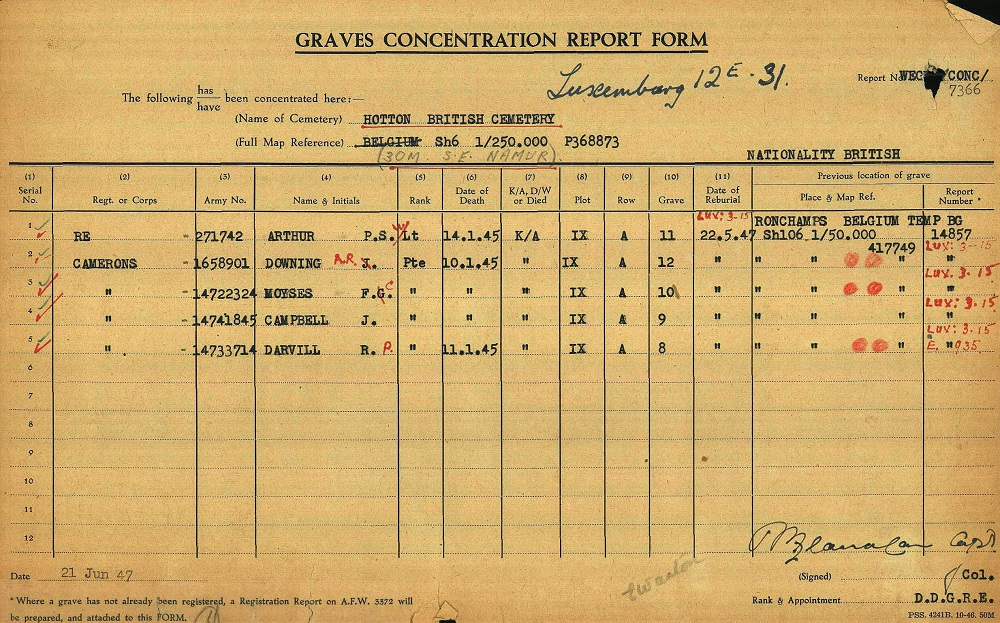 GRAVES CONCENTRATION REPORT FORM
Luxemburg 12E. 31.
Report No. WEC CONC/
7366
The following has/have been concentrated here:—
(Name of Cemetery) HOTTON BRITISH CEMETERY
(Full Map Reference) BELGIUM Sh6 1/250.000 P368873
(30M S.E. NAMUR)
NATIONALITY BRITISH
(1) (2) (3) (4) (5) (6) (7) (8) (9) (10) (11) Previous location of grave
Serial No. Regt. or Corps Army No. Name & Initials Rank Date of Death K/A, D/W or Died Plot Row Grave Date of Reburial Place & Map Ref. Report Number *
LUX: 3-15 RONCHAMPS BELGIUM TEMP BG
1 RE - 271742 ARTHUR P.S. W Lt 14.1.45 K/A IX A 11 22.5.47 Sh106 1/50.000 14857
417749 LUX: 3-15
2 CAMERONS - 1658901 DOWNING A.R. J. Pte 10.1.45 " IX A 12 " " " "
LUX. 3.15
3 " - 14722324 MOYSES F.G. C " " " IX A 10 " " " "
LUX: 3.15
4 " - 14741845 CAMPBELL J. " " " IX A 9 " " " "
LUX: 3.15
5 " - 14733714 DARVILL R. P. " 11.1.45 " IX A 8 " " " E. " 935
6
7
8
9
10
11
12
Capt
Date 21 Jun 47
(Signed) Col.
Rank & Appointment D.D.G.R.E.
* Where a grave has not already been registered, a Registration Report on A.F.W. 3372 will
be prepared, and attached to this FORM.
PSS. 4241B. 10-46. 50M